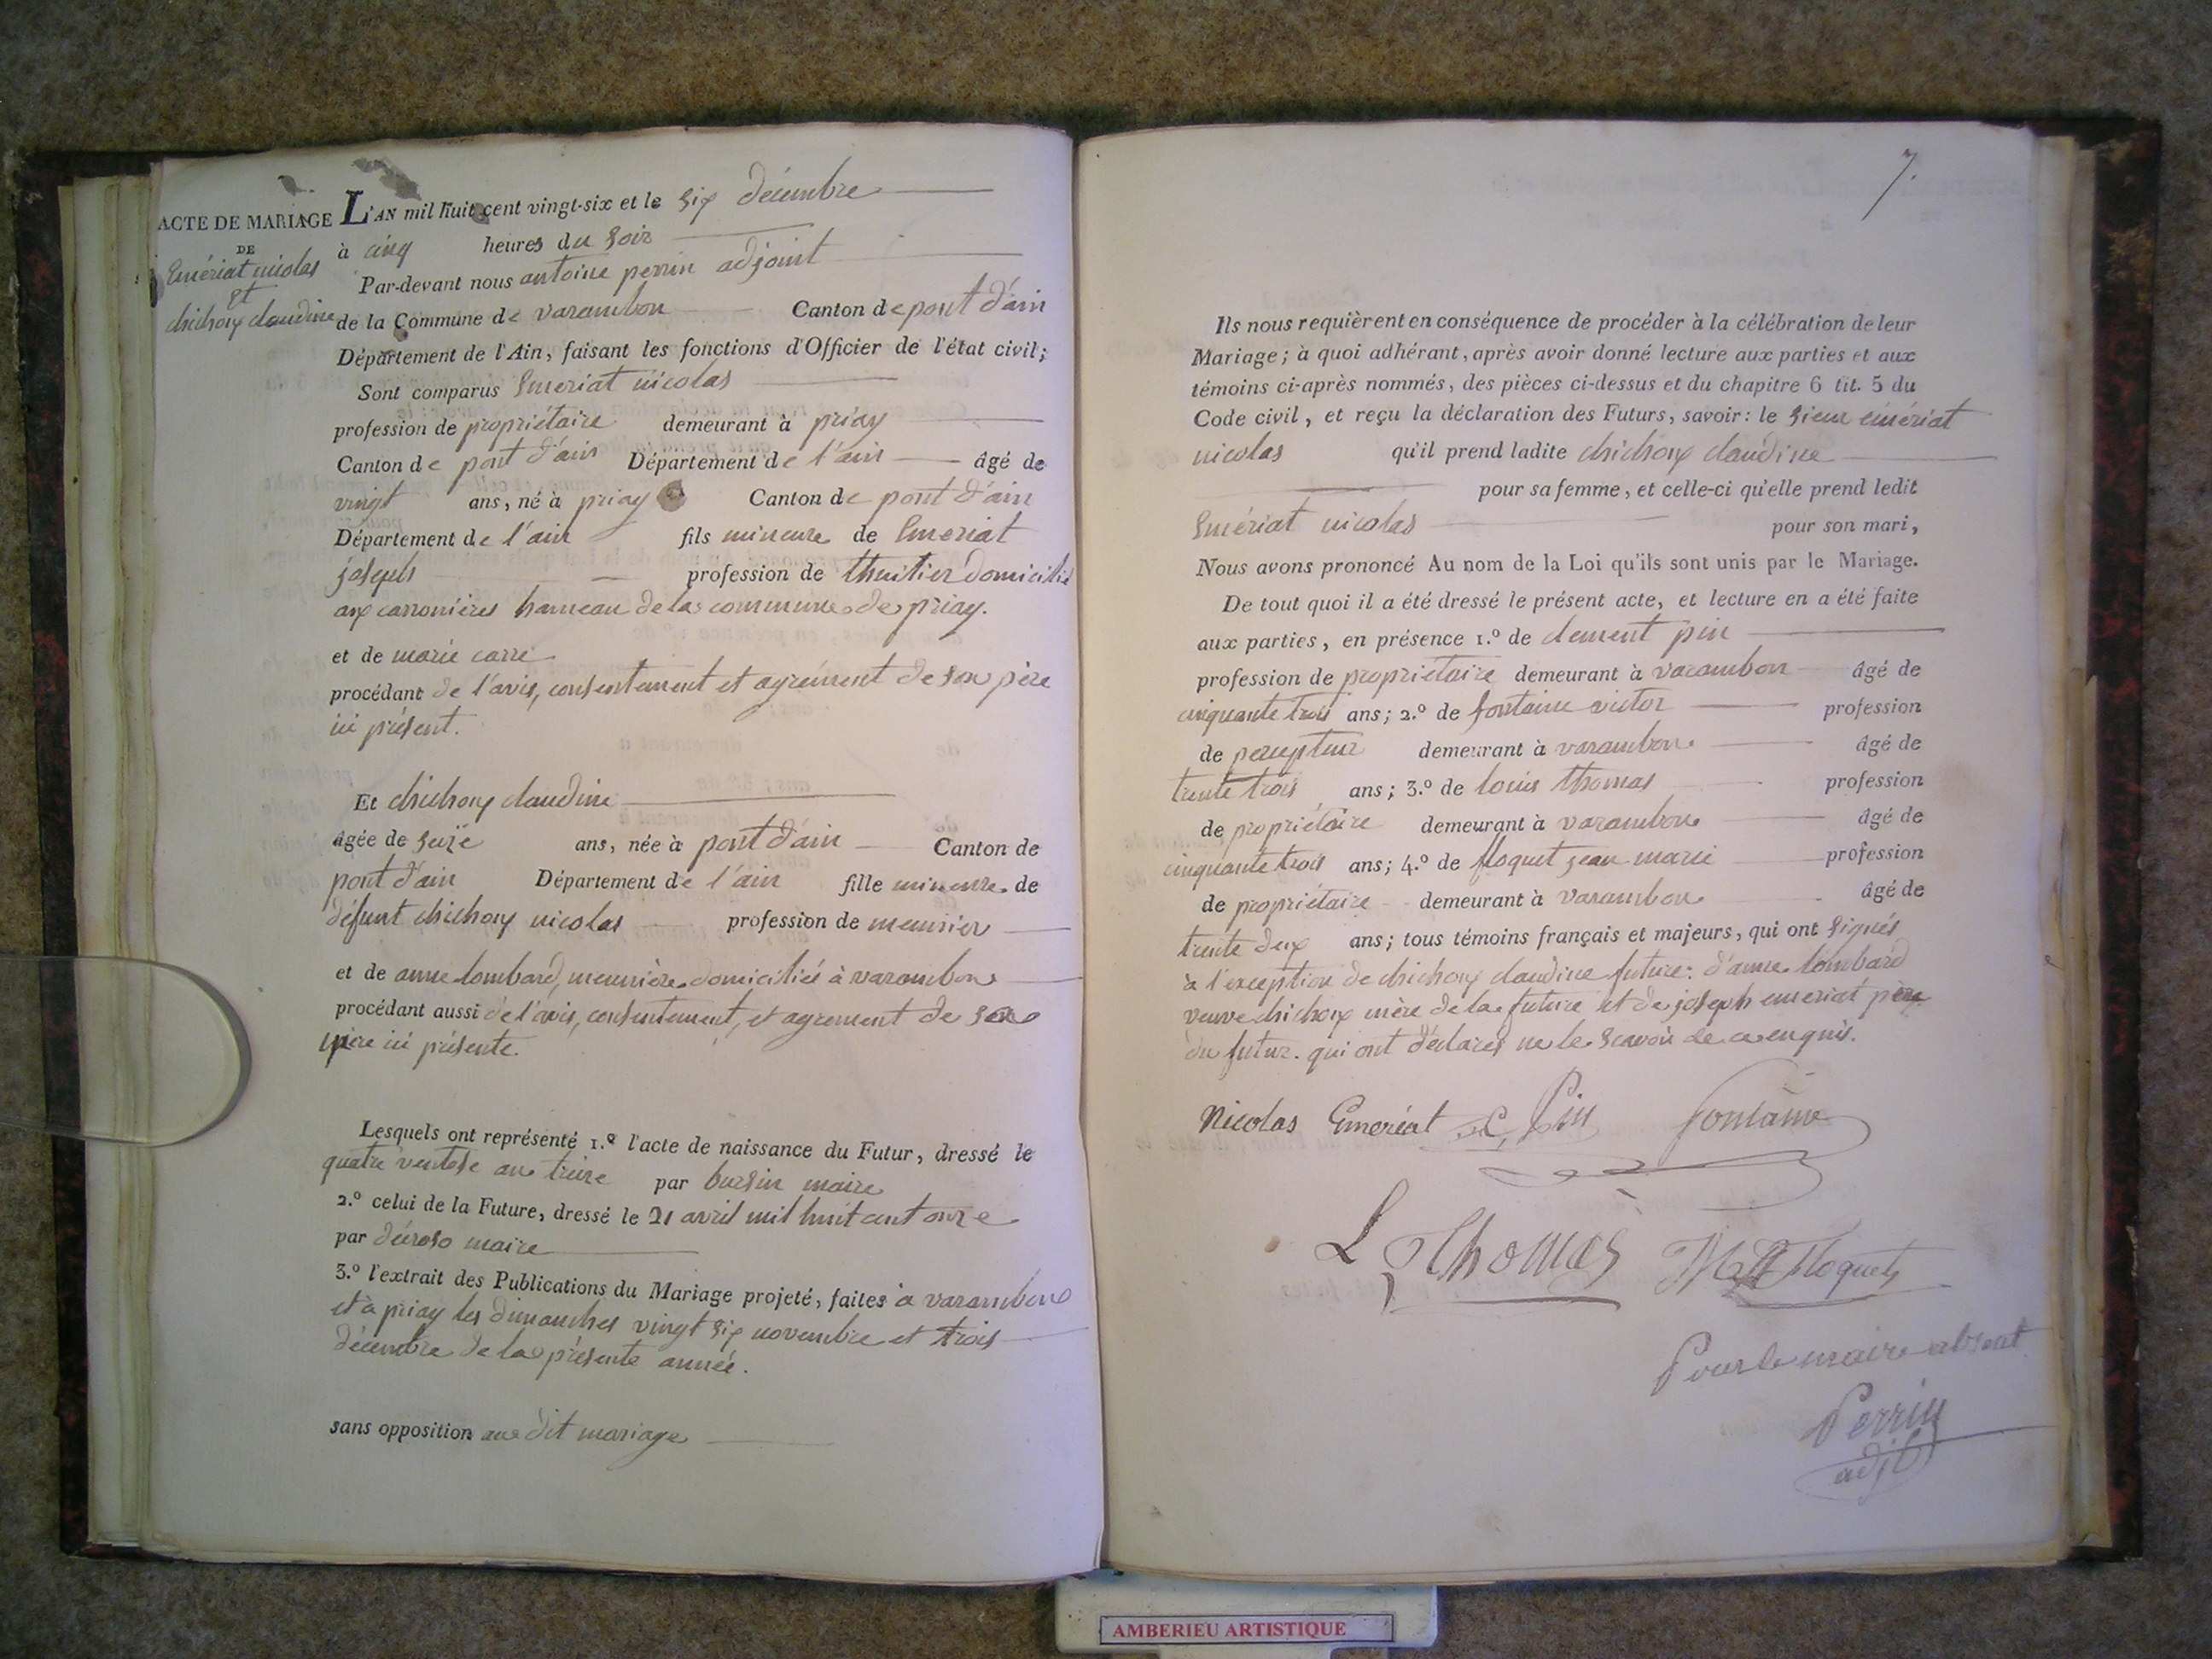 ACTE DE MARIAGE
DE
Emériat nicolas
et
chichoux claudine
L'AN mil huit cent vingt-six et le six décembre
à cinq heures du soir
Par-devant nous antoine perrin adjoint
de la Commune de varambon Canton de pont d'ain
Département de l'Ain, faisant les fonctions d'Officier de l'état civil;
Sont comparus Emeriat nicolas
profession de propriétaire demeurant à priay
Canton de pont d'ain Département de l'ain âgé de
vingt ans, né à priay Canton de pont d'ain
Département de l'ain fils mineure de Emeriat
joseph profession de thuilier domicilié
aux carronières hameau de la commune de priay.
et de marie carre
procédant de l'avis, consentement et agrément de son père
ici présent.
Et chichoux claudine
âgée de seize ans, née à pont d'ain Canton de
pont d'ain Département de l'ain fille mineure de
défunt chichoux nicolas profession de meunier
et de anne lombard, meunière domiciliée à varambon
procédant aussi de l'avis, consentement, et agrement de sa
mère ici présente.
Lesquels ont représenté 1.º l'acte de naissance du Futur, dressé le
quatre ventose an treize par bursin maire
2.º celui de la Future, dressé le 21 avril mil huit cent onze
par maire
3.º l'extrait des Publications du Mariage projeté, faites à varambon
et à priay les dimanches vingt six novembre et trois
décembre de la présente année.
sans opposition au dit mariage
7.
Ils nous requièrent en conséquence de procéder à la célébration de leur
Mariage; à quoi adhérant, après avoir donné lecture aux parties et aux
témoins ci-après nommés, des pièces ci-dessus et du chapitre 6 tit. 5 du
Code civil, et reçu la déclaration des Futurs, savoir: le sieur emériat
nicolas qu'il prend ladite chichoux claudine
pour sa femme, et celle-ci qu'elle prend ledit
Emériat nicolas pour son mari,
Nous avons prononcé Au nom de la Loi qu'ils sont unis par le Mariage.
De tout quoi il a été dressé le présent acte, et lecture en a été faite
aux parties, en présence 1.º de clement pin
profession de propriétaire demeurant à varambon âgé de
cinquante trois ans; 2.º de fontaine victor profession
de percepteur demeurant à varambon âgé de
trente trois ans; 3.º de louis thomas profession
de propriétaire demeurant à varambon âgé de
cinquante trois ans; 4.º de floquet jean marie profession
de propriétaire demeurant à varambon âgé de
trente deux ans; tous témoins français et majeurs, qui ont signés
à l'exception de chichoux claudine future: d'anne lombard
veuve chichoux mère de la future et de joseph emeriat père
du futur. qui ont déclarés ne le scavoir de ce enquis.
Nicolas Emeriat C, Pin fontaine
L Thomas floquet
Pour le maire absent
Perrin
adjt
AMBERIEU ARTISTIQUE